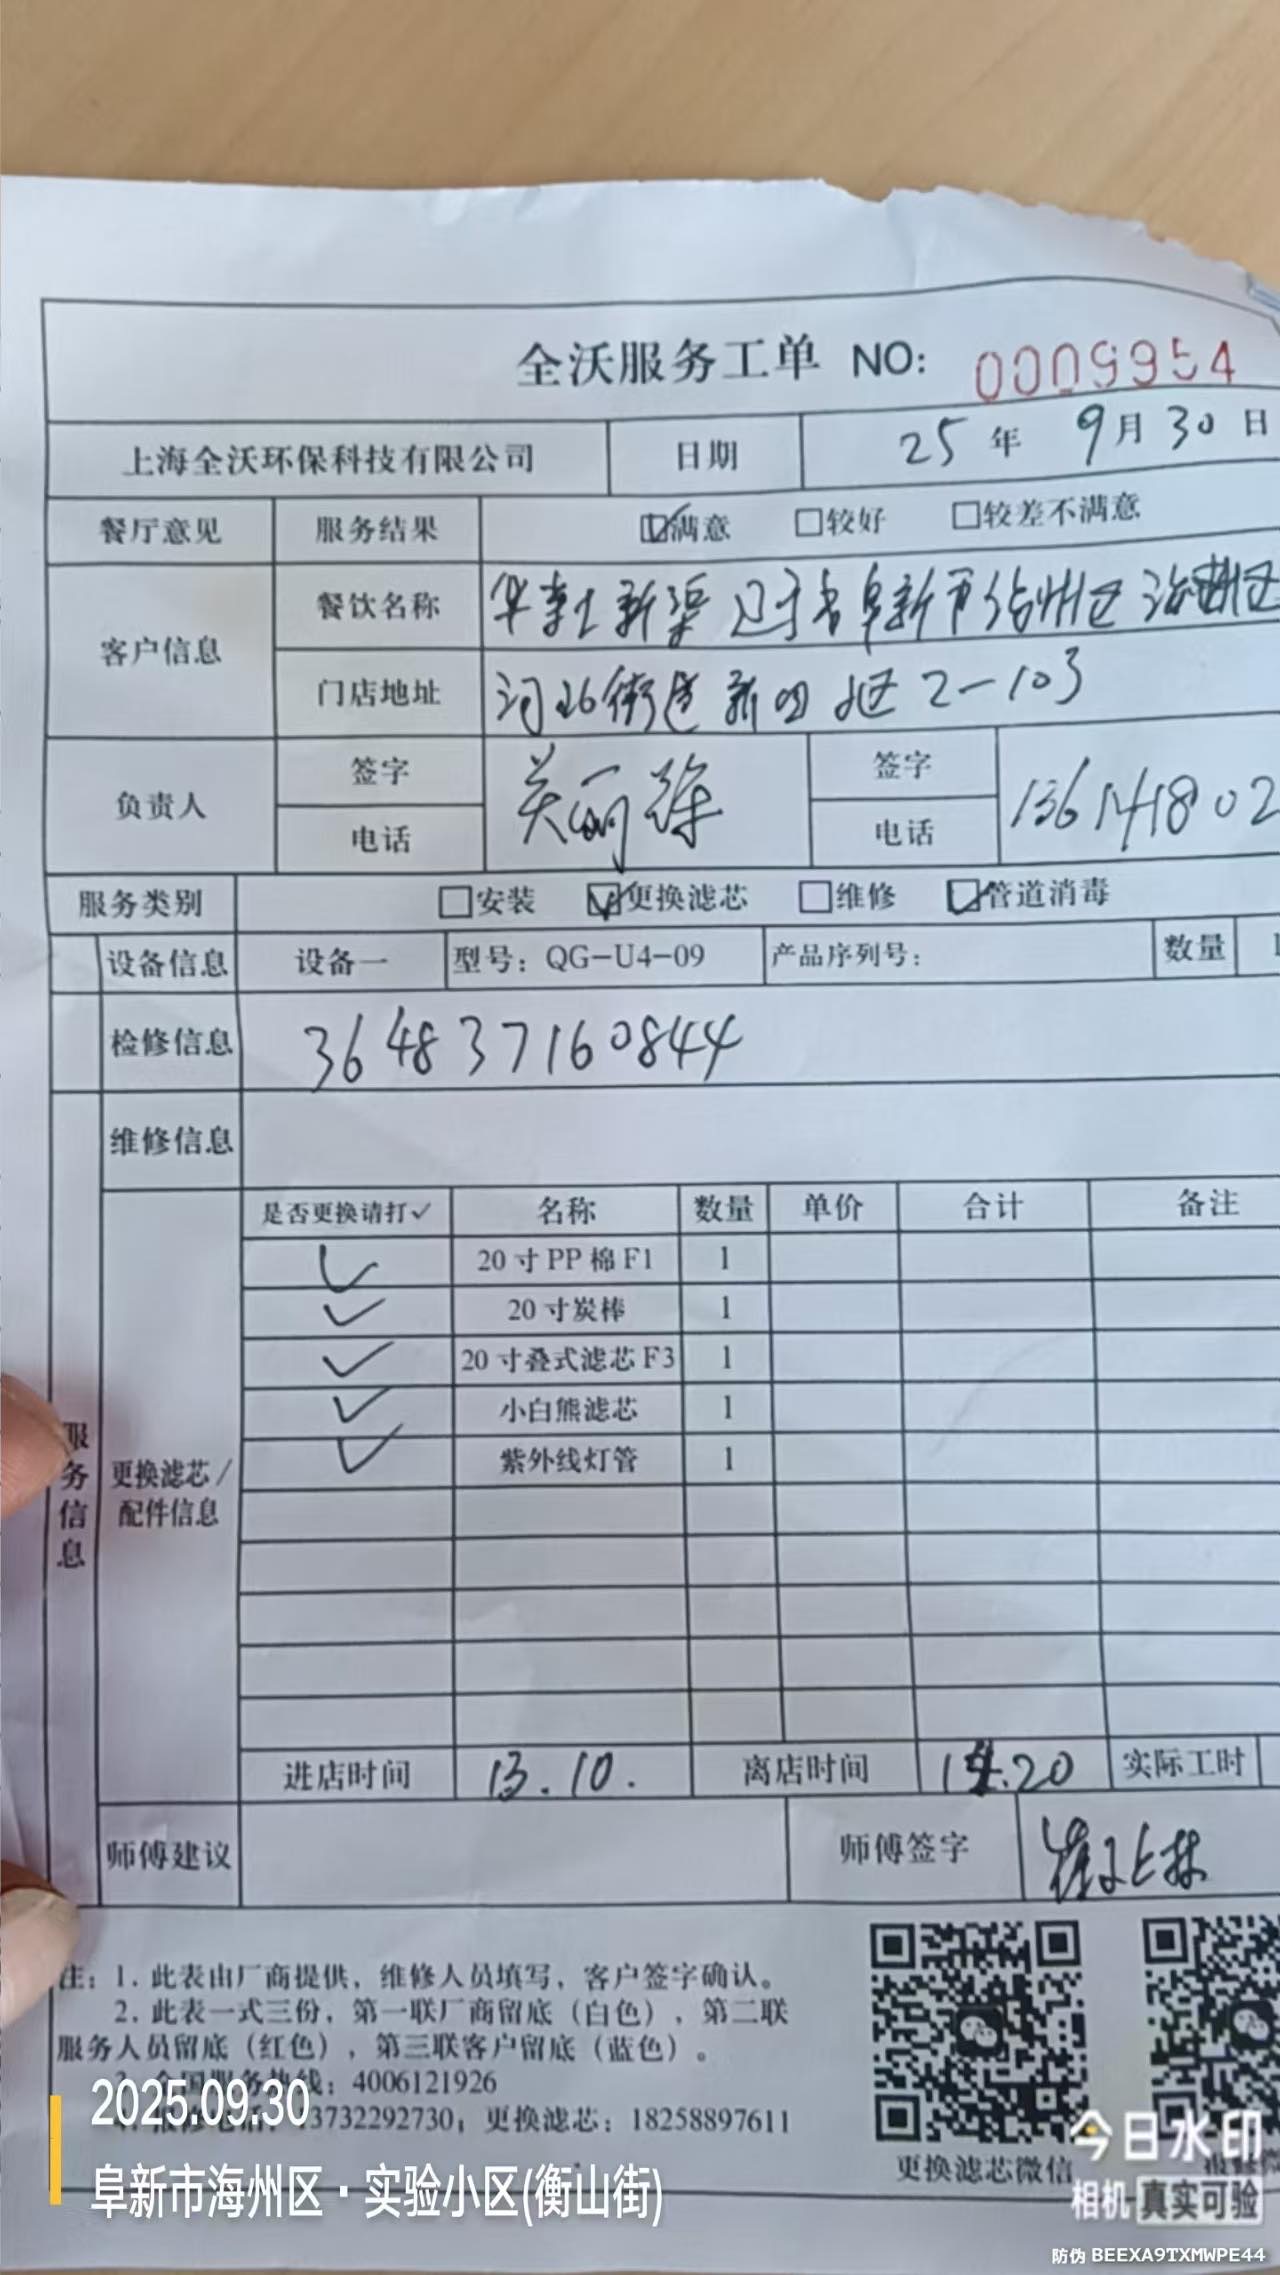 全沃服务工单 NO: 0009954
上海全沃环保科技有限公司 日期 25 年 9 月 30 日
餐厅意见 服务结果 ☑满意 □较好 □较差不满意
客户信息 餐饮名称 华莱士新渠 辽宁省阜新市海州区
门店地址 河北街道新 2-103
负责人 签字 签字
电话 电话 136141802
服务类别 □安装 ☑更换滤芯 □维修 ☑管道消毒
设备信息 设备一 型号：QG-U4-09 产品序列号： 数量
检修信息 364837160844
维修信息
是否更换请打✓ 名称 数量 单价 合计 备注
✓ 20 寸 PP 棉 F1 1
✓ 20 寸炭棒 1
✓ 20 寸叠式滤芯 F3 1
✓ 小白熊滤芯 1
✓ 紫外线灯管 1
服务信息
更换滤芯/
配件信息
进店时间 13.10. 离店时间 20 实际工时
师傅建议 师傅签字
注：1. 此表由厂商提供，维修人员填写，客户签字确认。
2. 此表一式三份，第一联厂商留底（白色），第二联
服务人员留底（红色），第三联客户留底（蓝色）。
3. 全国服务热线：4006121926
4. 报修电话：13732292730；更换滤芯：18258897611
更换滤芯微信
2025.09.30
阜新市海州区·实验小区(衡山街)
今日水印
相机 真实可验
防伪 BEEXA9TXMWPE44